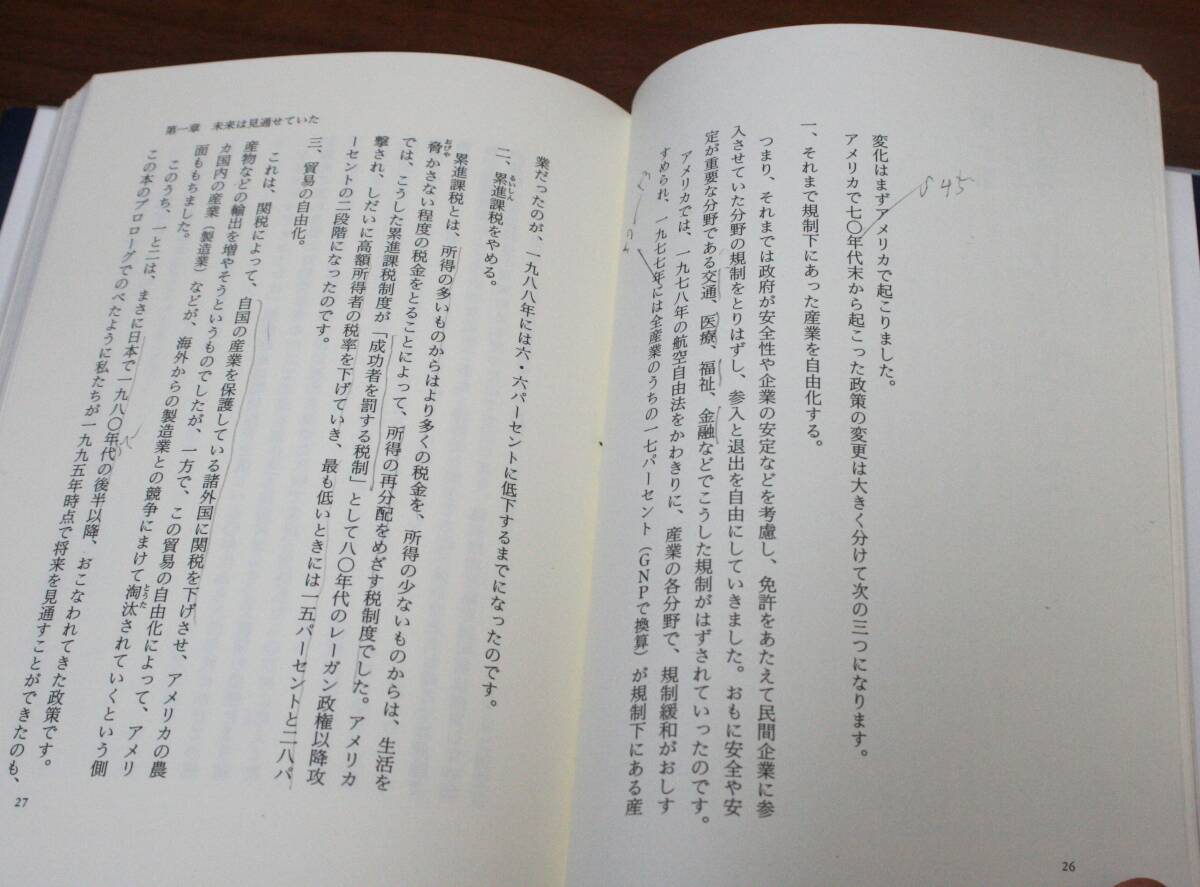 変化はまずアメリカで起こりました。
アメリカで七〇年代末から起こった政策の変更は大きく分けて次の三つになります。
一、それまで規制下にあった産業を自由化する。
つまり、それまでは政府が安全性や企業の安定などを考慮し、免許をあたえて民間企業に参
入させていた分野の規制をとりはずし、参入と退出を自由にしていきました。おもに安全や安
定が重要な分野である交通、医療、福祉、金融などでこうした規制がはずされていったのです。
アメリカでは、一九七八年の航空自由法をかわきりに、産業の各分野で、規制緩和がおしす
すめられ、一九七七年には全産業のうちの一七パーセント（GNPで換算）が規制下にある産
26
第一章 未来は見通せていた
業だったのが、一九八八年には六・六パーセントに低下するまでになったのです。
二、累進課税をやめる。
るいしん
累進課税とは、所得の多いものからはより多くの税金を、所得の少ないものからは、生活を
脅かさない程度の税金をとることによって、所得の再分配をめざす税制度でした。アメリカ
おびや
では、こうした累進課税制度が「成功者を罰する税制」として八〇年代のレーガン政権以降攻
撃され、しだいに高額所得者の税率を下げていき、最も低いときには一五パーセントと二八パ
ーセントの二段階になったのです。
三、貿易の自由化。
これは、関税によって、自国の産業を保護している諸外国に関税を下げさせ、アメリカの農
産物などの輸出を増やそうというものでしたが、一方で、この貿易の自由化によって、アメリ
カ国内の産業（製造業）などが、海外からの製造業との競争にまけて淘汰されていくという側
とうた
面ももちました。
このうち、一と二は、まさに日本で一九八〇年代の後半以降、おこなわれてきた政策です。
この本のプロローグでのべたように私たちが一九九五年時点で将来を見通すことができたのも、
27